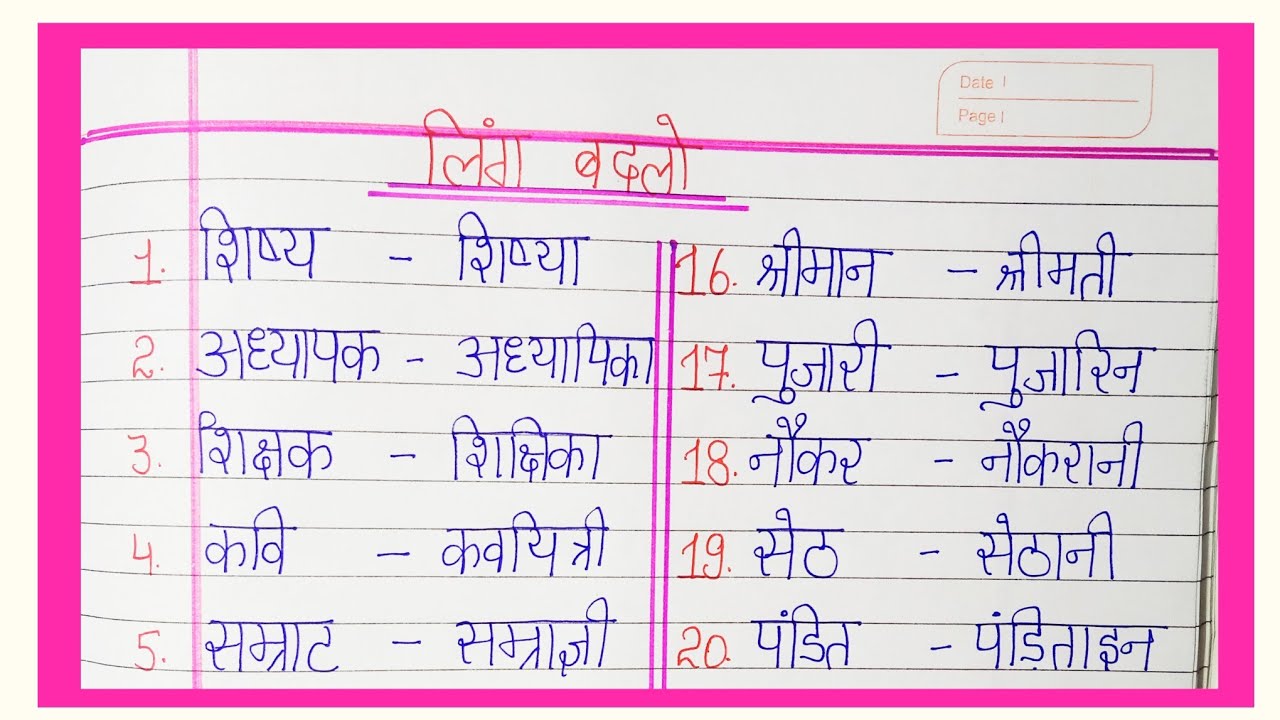 Date
Page
लिंग बदलो
1. शिष्य - शिष्या
2. अध्यापक - अध्यापिका
3. शिक्षक - शिक्षिका
4. कवि - कवयित्री
5. सम्राट - सम्राज्ञी
16. श्रीमान - श्रीमती
17. पुजारी - पुजारिन
18. नौकर - नौकरानी
19. सेठ - सेठानी
20. पंडित - पंड़िताइन